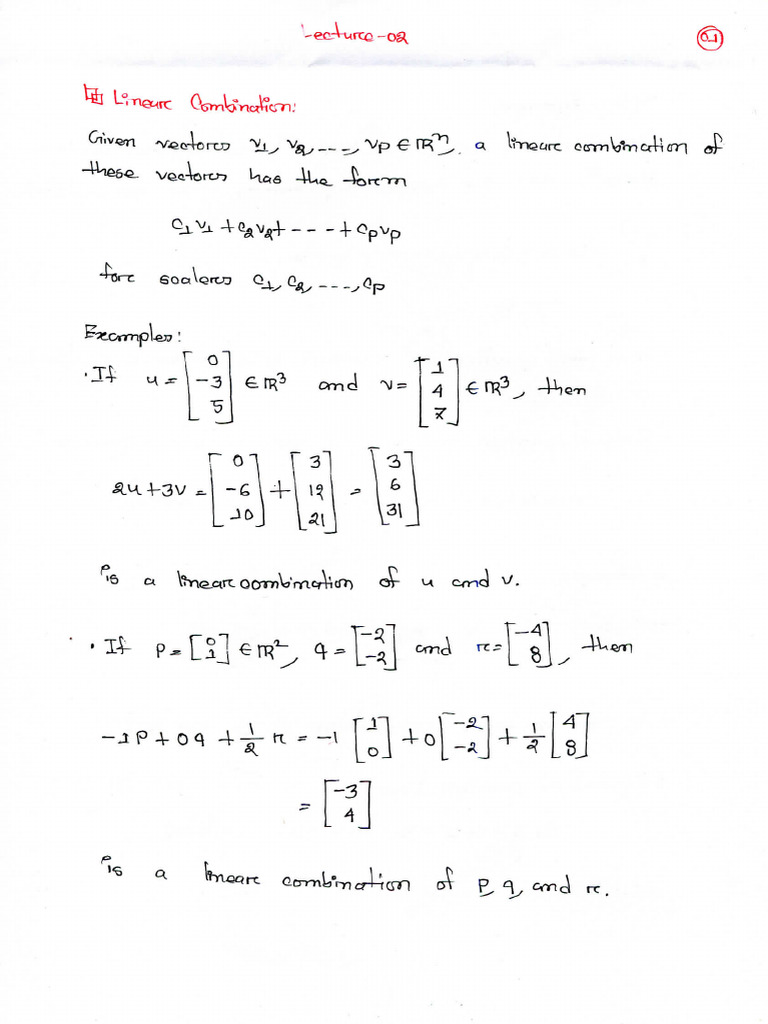 Lecture-02
01
Linear Combination:
Given vectors v₁, v₂ ---, vp ∈ ℝⁿ, a linear combination of
these vectors has the form
c₁v₁ + c₂v₂ + --- + cpvp
for scalars c₁, c₂, ---, cp
Examples:
· If u = [0 -3 5] ∈ ℝ³ and v = [1 4 7] ∈ ℝ³, then
2u + 3v = [0 -6 10] + [3 12 21] = [3 6 31]
is a linear combination of u and v.
· If p = [0 1] ∈ ℝ², q = [-2 -2] and r = [-4 8], then
-1p + 0q + 1/2 r = -1 [1 0] + 0 [-2 -2] + 1/2 [4 8]
= [-3 4]
is a linear combination of p, q, and r.